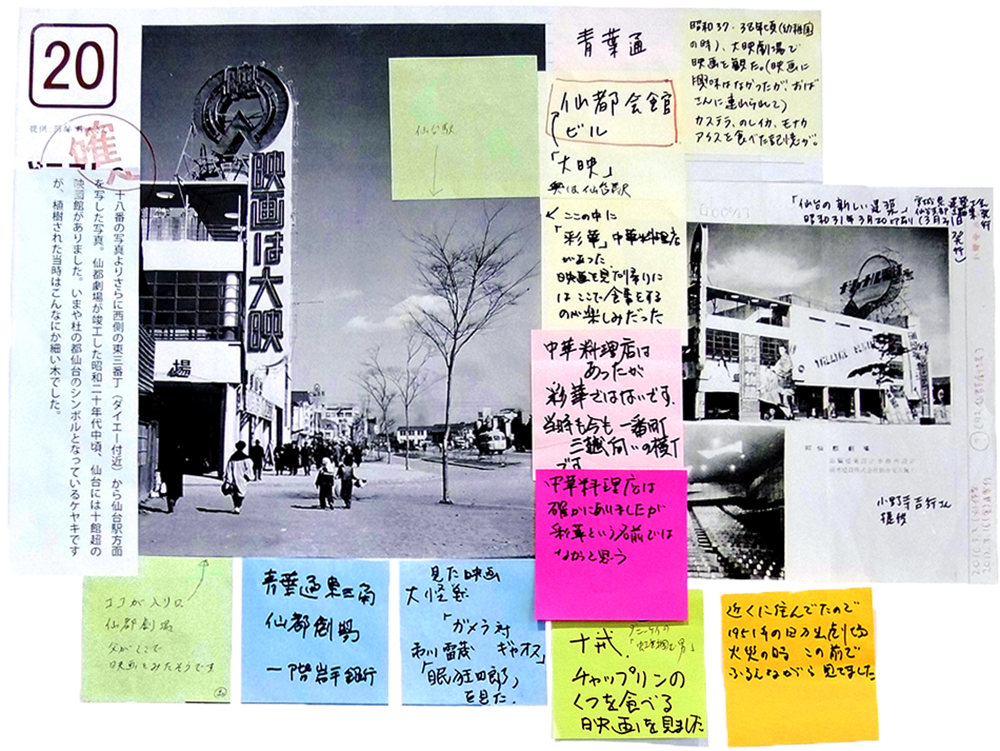 20
確
十八番の写真よりさらに西側の東三番丁(ダイエー付近)から仙台駅方面
を写した写真。仙都劇場が竣工した昭和二十年代中頃、仙台には十館超の
映画館がありました。いまや杜の都仙台のシンボルとなっているケヤキです
が、植樹された当時はこんなにか細い木でした。
映画は大映
場
仙台駅
青葉通
仙都会館
ビル
「大映」
ここの中に
「彩華」中華料理店
があった
映画を見た帰りに
はここで食事をする
のが楽しみだった
中華料理店は
あったが
彩華ではないです。
当時も今も一番町
三越向いの横丁
です
中華料理店は
確かにありましたが
彩華という名前では
なかったと思う
昭和37・38年頃(幼稚園
の時)、大映劇場で
映画を観た。(映画に
興味はなかったが、おば
さんに連れられて)
カステラ、のしイカ、モナカ
アイスを食べた記憶が。
「仙台の新しい建築」
昭和31年3月20日
小野寺吉行さん
提供
ココが入り口
仙都劇場
父がここで
映画をみたそうです
青葉通東三角
仙都劇場
一階岩手銀行
見た映画
大怪獣
「ガメラ対
ギャオス」
市川雷蔵
「眠狂四郎」
を見た.
十戒.
チャップリンの
くつを食べる
映画を見ました
近くに住んでたので
火災の時 この前で
ふるえながら見てました